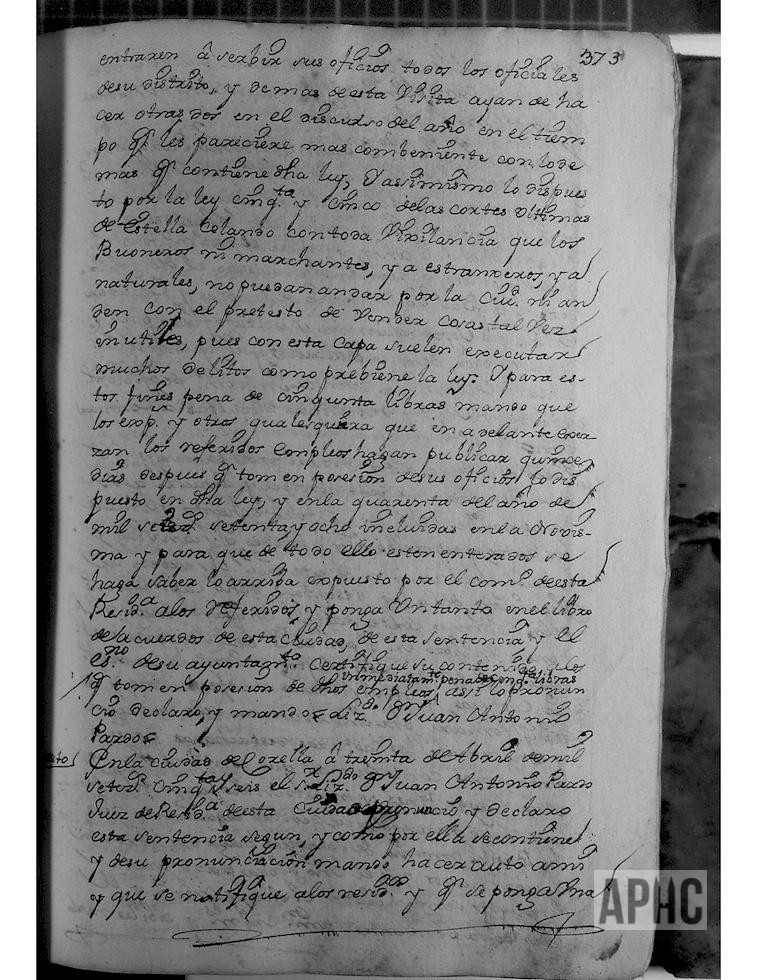 373
entraren â serbir sus oficios todos los oficiales
desu distrito, y demas de esta Visita ayan de ha
cer otras dos en el discurso del año en el tiem
po q.e les pareciere mas combeniente con lo de
mas q.e contiene dha ley, Y assimismo lo dispues
to por la ley cinq.ta y cinco delas cortes Ultimas
de Estella Zelando con toda Vixilancia que los
Buoneros ni marchantes, ya estranxeros, ya
naturales, no puedan andar por la Ciud. ni an
den con el pretesto de Vender cosas tal Vez
inutiles, pues con esta capa suelen executar
muchos delitos como prebiene la ley. Y para es-
tos fines pena de cinquenta libras mando que
los exp.s y otros qualesquiera que en adelante exer-
zan los referidos empleos hagan publicar quince
dias despues q.e tomen posesion desus oficios lo dis
puesto en dha ley, y en la quarenta del año de
mil setez.s setenta, y ocho incluidas en la Novis-
ma y para que de todo ello esten enterados se
haga saber lo arriba expuesto por el com.o de esta
Resid.a alos referidos y ponga Un tanto en el libro
de acuerdos de esta ciudad, de esta sentencia y el
es.no desu ayuntam.to certifique su contenido a los
q.e tomen posesion de dhos empleos, assi lo pronun
inmediatam.te pena de cinq.ta libras
ció declaró, y mandó Liz.do Dn Juan Antonio
Pardo
Auto En la ciudad de Corella â treinta de Abril de mil
setez.s cinq.ta y seis el S.r Liz.do Dn Juan Antonio Pardo
Juez de Resid.a de esta Ciudad pronunció y declaró
esta sentencia segun, y como por ella se contiene
y desu pronunciacion mandó hacer auto a mi
y que se notifique alos resid.dos y q.e se ponga Una
APHC